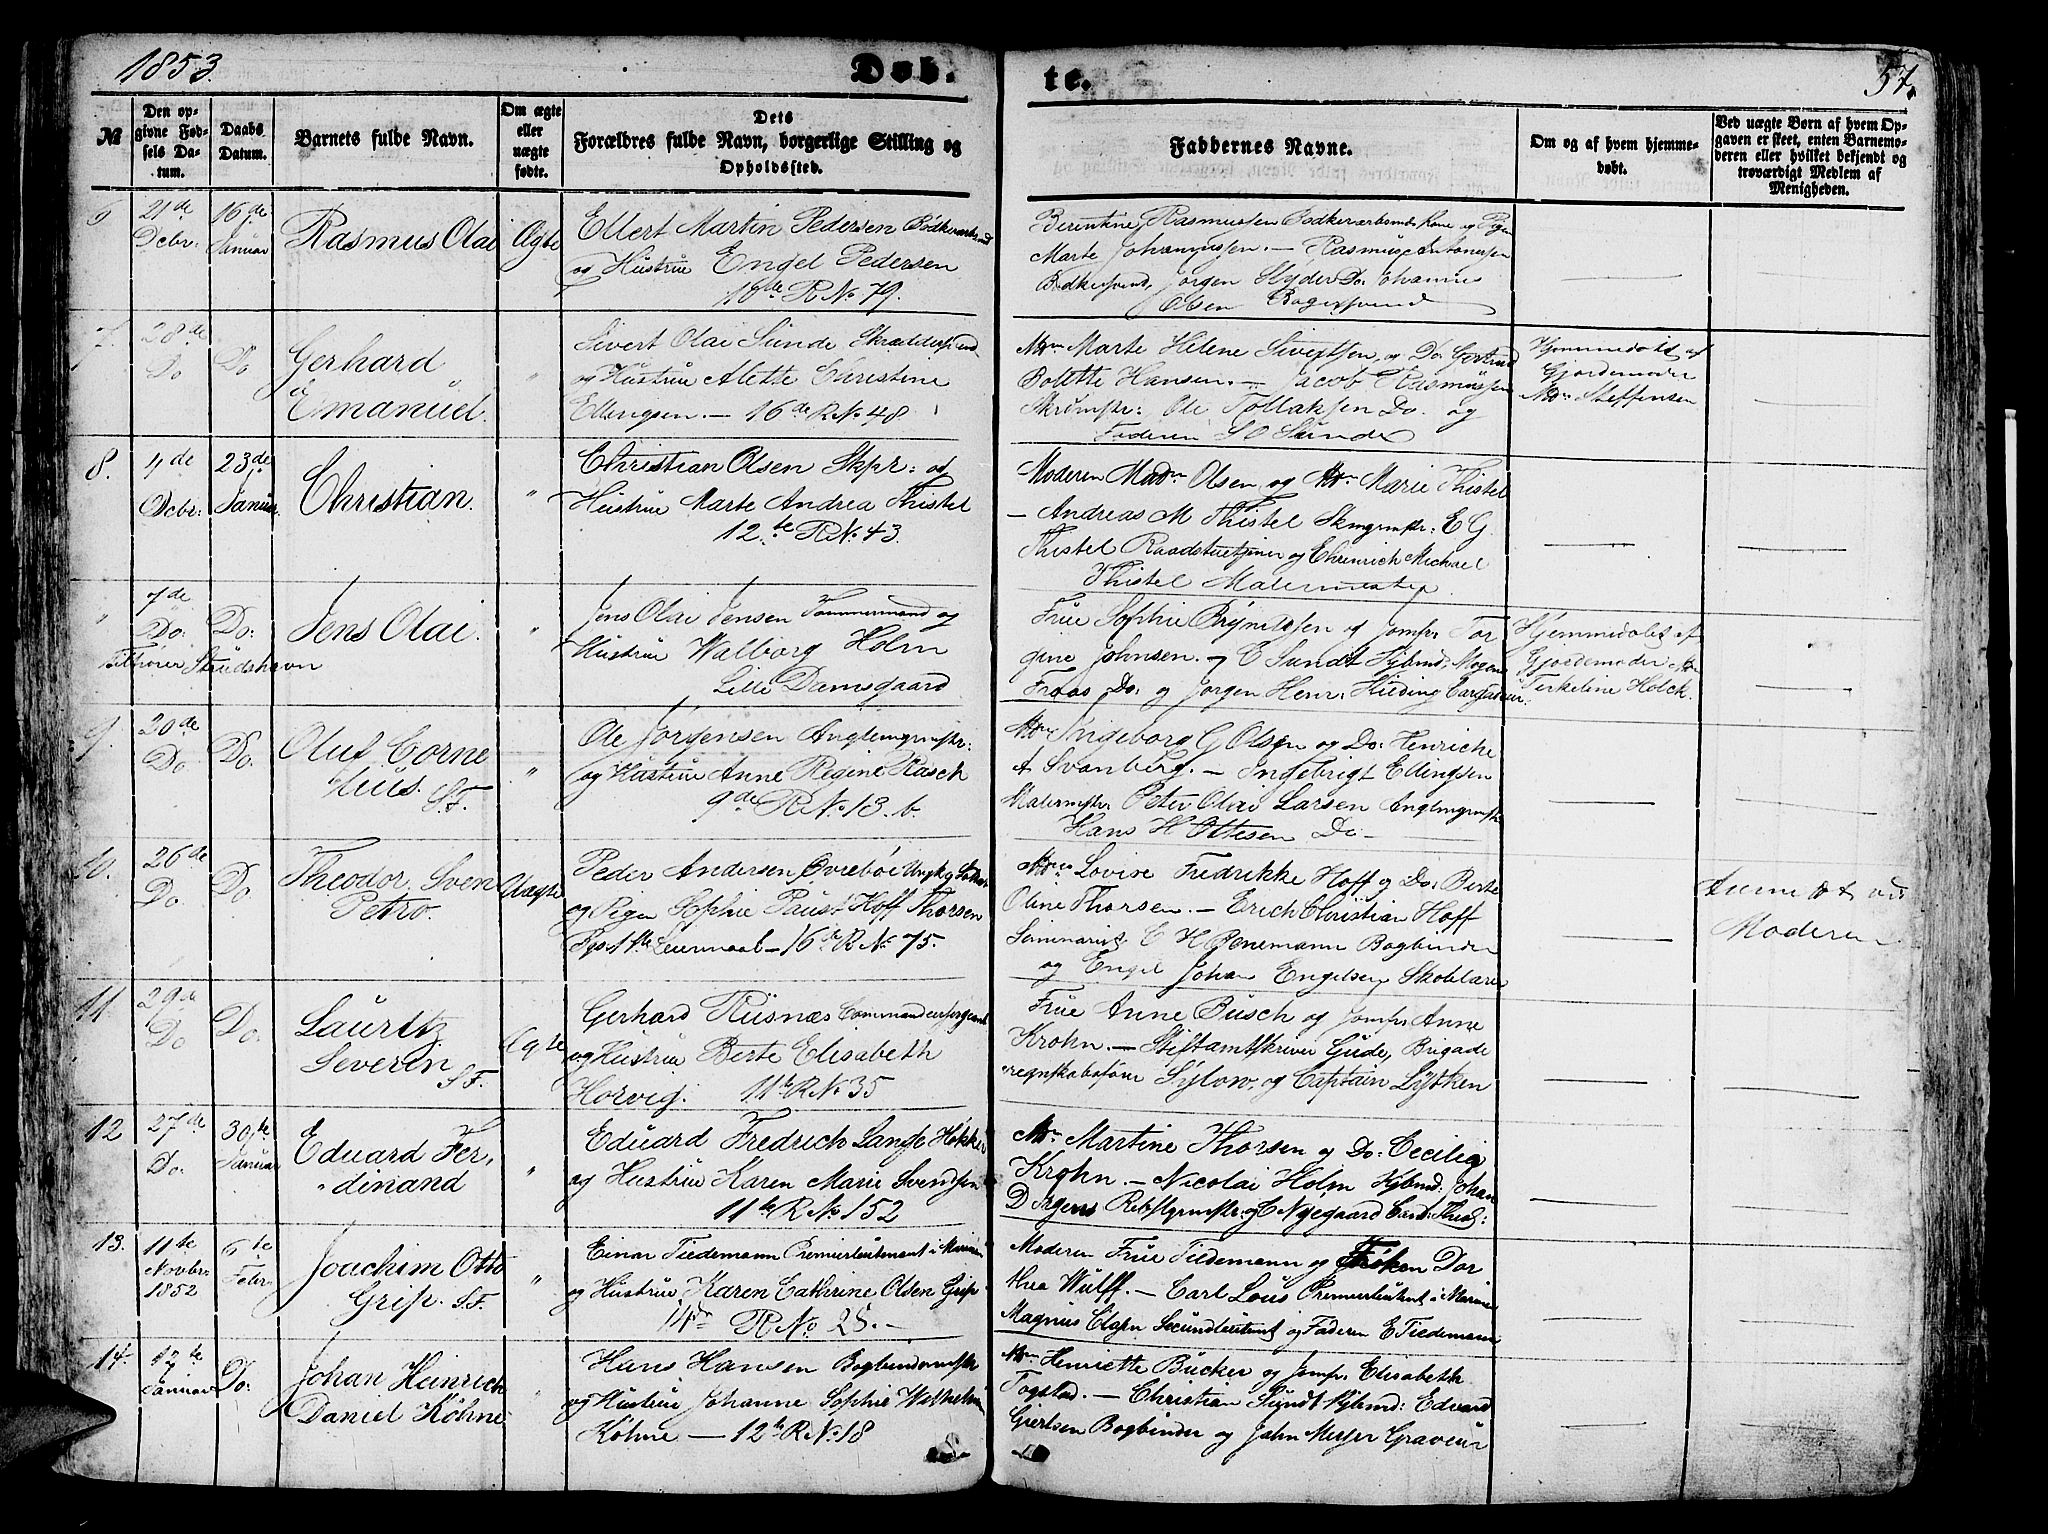 1853.
Døb.
te.
57.
№
Den op-
givne Fød-
sels Da-
tum.
Daabs
Datum.
Barnets fulde Navn.
Om ægte
eller
uægte
fødte.
Dets
Forældres fulde Navn, borgerlige Stilling og
Opholdssted.
Faddernes Navne.
Om og af hvem hjemme-
døbt.
Ved uægte Børn af hvem Op-
gaven er skeet, enten Barnemo-
deren eller hvilket bekjendt og
troværdigt Medlem af
Menigheden.
6
21de
Decbr:
16de
Januar
Rasmus Olai
Ægte
Ellert Martin Pedersen
og Hustrue Engel Pedersen
18de R No 79.
Berentine Rasmussen Kone og Pigen
Marte Johannissen. — Rasmus Antonissen
Bødkersvend, Jørgen Skyder Do. Johannes
Olsen Bagersvend
7.
28de
Do
Do
Gerhard
Emanuel.
"
Sivert Olai Sunde
og Hustrue Alette Christine
Ellingsen. — 16de R No 48
Mdm Marte Helene Sivertsen, og Do. Gjertrud
Bolette Hansen. — Jacob Rasmussen
Skrmstr: Ole Tollaksen Do. og
Faderen S O Sunde
Hjemmedøbt af
Gjordemoder
Mdm Steffensen
8.
4de
Decbr:
23de
Januar.
Christian.
"
Christian Olsen Skpr: og
Hustrue Marte Andrea Thistel
12te R No. 43.
Moderen Madm Olsen, og Mdm Marie Thistel
— Andreas M Thistel E G
Thistel Raadstuetjener og Ehrenrich Michael
Thistel Malermester
"
7de
Do:
Do:
Jens Olai.
"
Jens Olai Jensen Tømmermand og
Hustrue Walborg Holm
Lille Damsgaard
Tilhører Strudshavn
Frue Sophie Brynildsen og Jomfr. Tor
gine Johnsen. — E Sundt Kjbmd, Mogens
Fraas Do. og Jørgen Henr: Hieding
Hjemmedøbt af
Gjordemoder Mdm
Terkeline Holck.
9.
20de
Do
Do.
Oluf Corne
lius. S.F.
"
Ole Jørgensen
og Hustrue Anne Regine Rasch
9de R No 13. b.
Mdm Ingeborg G Olsen og Do: Henriche
A Svanberg. — Ingebrigt Ellingsen
Malermstr. Peter Olai Larsen
Hans H Ottesen Do —
10.
26de
Do.
Do
Theodor Sven
Petro.
Uægte
Peder Andersen Øvrebøe Ungk og Soldat
og Pigen Sophie Paust Hoff Thorsen
Bgs 1ste Leiermaal — 16de R No 75.
Mdm Lovise Fredrikke Hoff og Do. Berte
Oline Thorsen. — Erich Christian Hoff
Seminarist C H Penemann Bogbinder
og Engel Johan Engelsen Skolelærer
Moderen
11.
29de
Do
Do.
Lauritz
Severin S.F.
Ægte
Gerhard Rusnæs Commandeursergeant
og Hustrue Berte Elisabeth
Horvig. 11te R No 35
Frue Anne Busch og Jomfr. Anne
Krohn. — Stiftamtskriver Gude, Brigade
regnskabsfører Sylow, og Captain Lytken
12
27de
Do.
30te
Januar
Eduard Fer,
dinand
"
Eduard Fredrich Lange Høkker
og Hustrue Karen Marie Svendsen
11te R No 152
Mdm Martine Thorsen og Do. Cecilia
Krohn. — Nicolai Holm Kjbmd. Johan
D Jrgens Rebslgrmstr: og C Nyegaard Cand. Theol:
13.
11te
Novbr
1852
6te
Febr
Joachim Otto
Grip. S.F.
"
Einar Tiedemann Premierleutnant i Marinen
og Hustrue Karen Cathrine Olsen Grip.
14de R No 25. —
Moderen Frue Tiedemann og Frøken Dor
thea Wulff. — Carl Lous Premierleutnt i Marinen
Magnus Olsen Secundleutnt og Faderen E Tiedemann
14.
12te
Januar
Do:
Johan Heinrich
Daniel Köhne
"
Hans Hansen Bogbindermstr
og Hustrue Johanne Sophie Wilhelmine
Köhne — 12te R No 18
Mdm Henriette Bücker og Jomfr. Elisabeth
Togstad. — Christian Sundt Kjbmd: Edvard
Giertsen Bogbinder og John Meyer Graveur